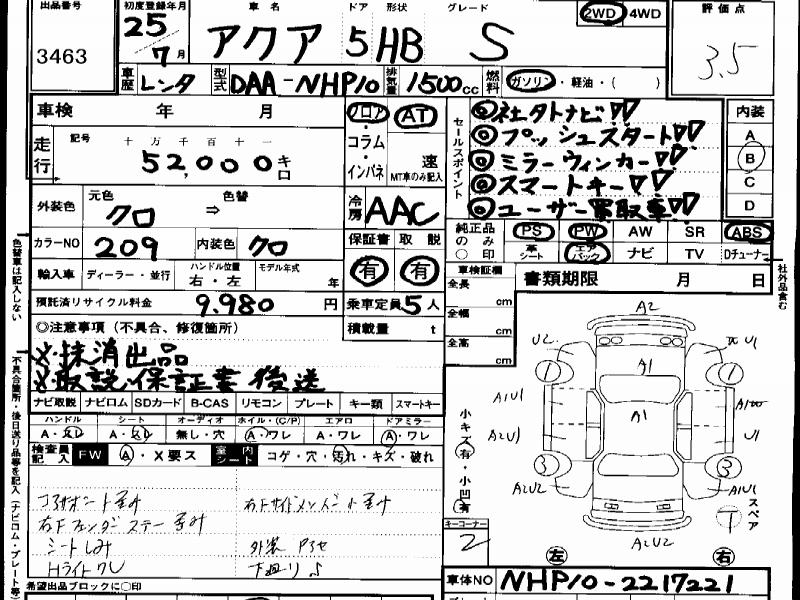 出品番号
3463
初度登録年月
25年
7月
車名 ドア 形状 グレード
アクア 5 HB S
2WD 4WD
評価点
3.5
車歴 レンタ 型式 DAA-NHP10 排気量 1500cc 燃料 ガソリン・軽油・( )
車検 年 月
フロア・コラム・インパネ
AT
速
MT車のみ記入
セールスポイント
◎社外ナビ
◎プッシュスタート
◎ミラーウィンカー
◎スマートキー
◎ユーザー買取車
内装
A
B
C
D
走行
記号 十 万 千 百 十 一
52,000 キロ
外装色 元色 クロ ⇒ 色替
冷房 AAC
カラーNO 209 内装色 クロ
保証書 取説
有 有
純正品のみ○印
PS PW AW SR ABS
革シート エアバック ナビ TV Dチューナー
輸入車 ディーラー・並行 ハンドル位置 右・左 モデル年式 年
車検証欄
全長 cm
全幅 cm
全高 cm
書類期限 月 日
社外品含む
預託済リサイクル料金 9.980 円
乗車定員 5人
積載量 t
◎注意事項(不具合、修復箇所)
抹消出品
取説保証書後送
ナビ取説 ナビロム SDカード B-CAS リモコン プレート キー類 スマートキー
ハンドル シート オーディオ ホイル・(C/P) エアロ ドアミラー
無し・穴 A・ワレ A・ワレ A・ワレ
検査員記入 FW A・X要ス 室内シート コゲ・穴・汚れ・キズ・破れ
コアサポート歪み
右Fサイドメンバー歪み
右Fフェンダーステー歪み
シートしみ
外装
Hライトクリ
下廻りS
小キズ有・小凹有
キーコーナー
2
A2
U2
A1
A1
A1U1
A2U1
A2U2
U1
A1U1
A2U2
1
1
3
3
スペア
T
左 右
色替車は記入しない
希望出品ブロックに○印
車体NO NHP10-2217221